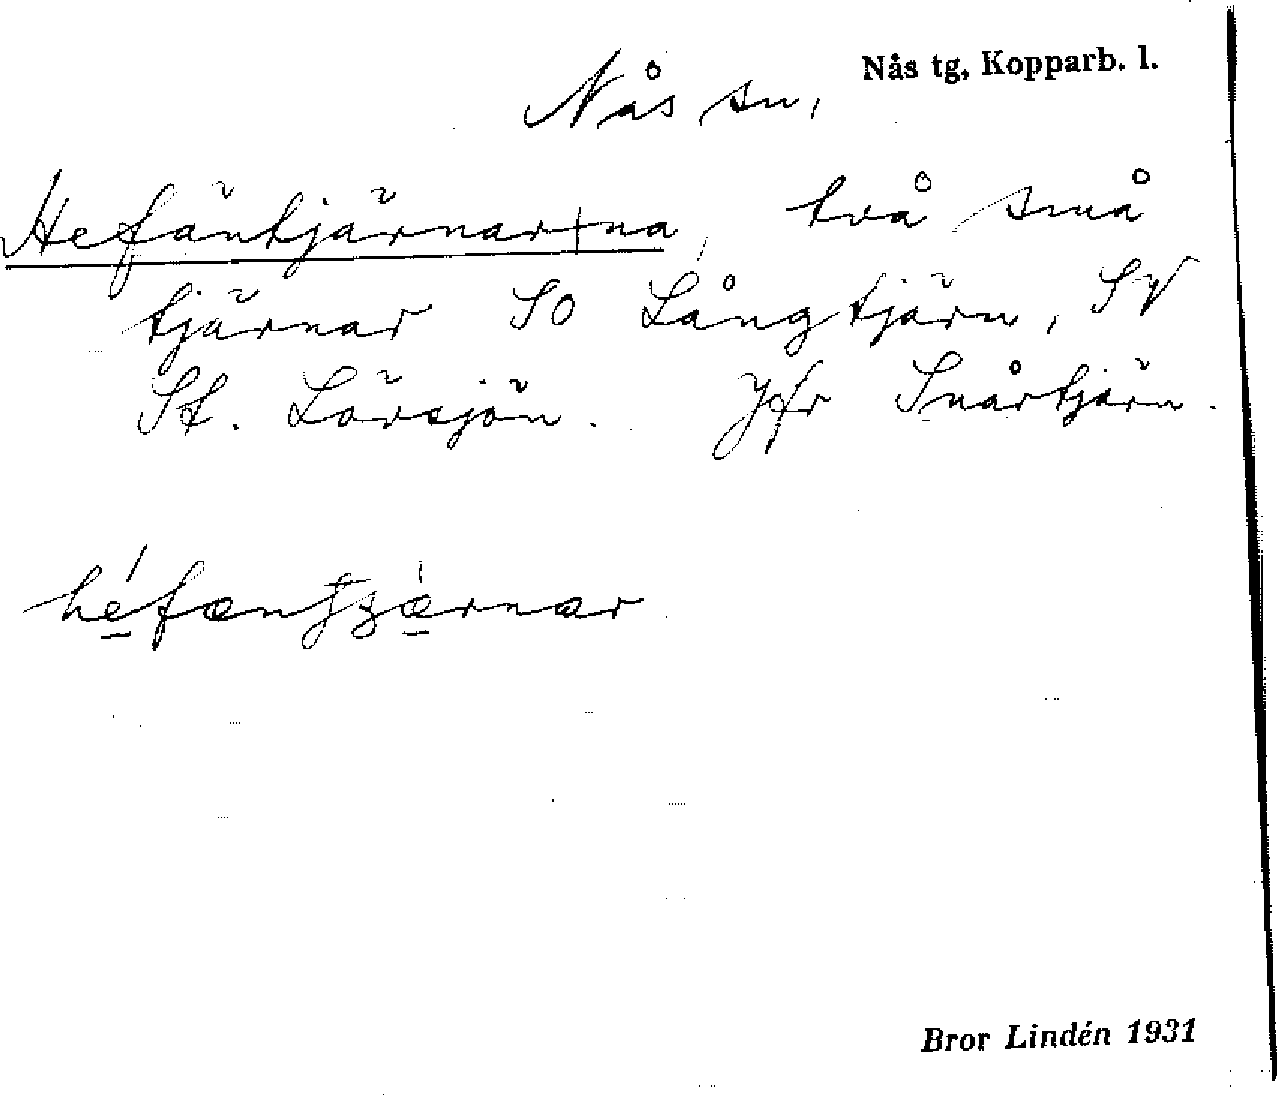 Nås tg, Kopparb. l.
Nås sn,
Hefäntjärnar+na, två små
tjärnar SO Långtjärn, SV
St. Lövsjön. Jfr Snårtjärn.
Bror Lindén 1931